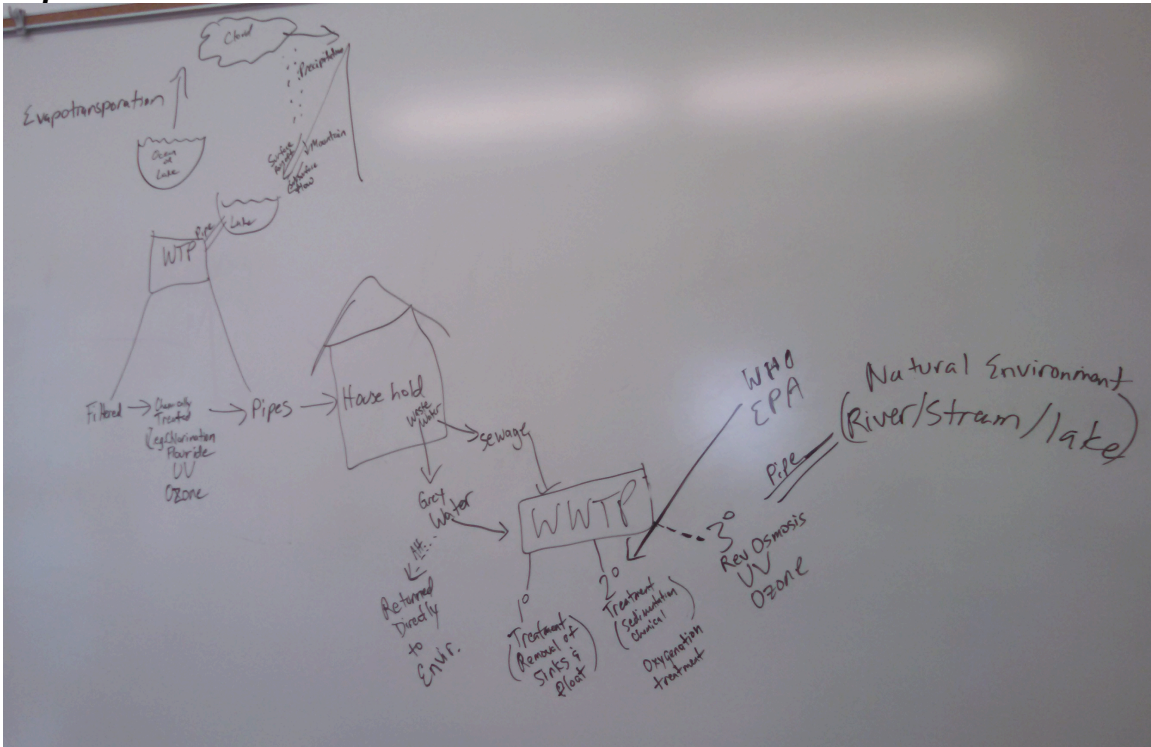 Cloud
Precipitation
Evapotransporation
Mountain
Surface
Runoff
Subsurface
flow
Ocean
or
Lake
Lake
Pipe
WTP
Filtered
Chemically
Treated
(eg Chlorination
Flouride
UV
Ozone
Pipes
House hold
Waste
Water
Sewage
Grey
Water
Alt.
Returned
Directly
to
Envir.
WWTP
1°
Treatment
(Removal of
Sinks &
float)
2°
Treatment
(Sedimentation
Chemical)
Oxygenation
treatment
3°
Rev Osmosis
UV
Ozone
WHO
EPA
Pipe
Natural Environment
(River/Stram/lake)